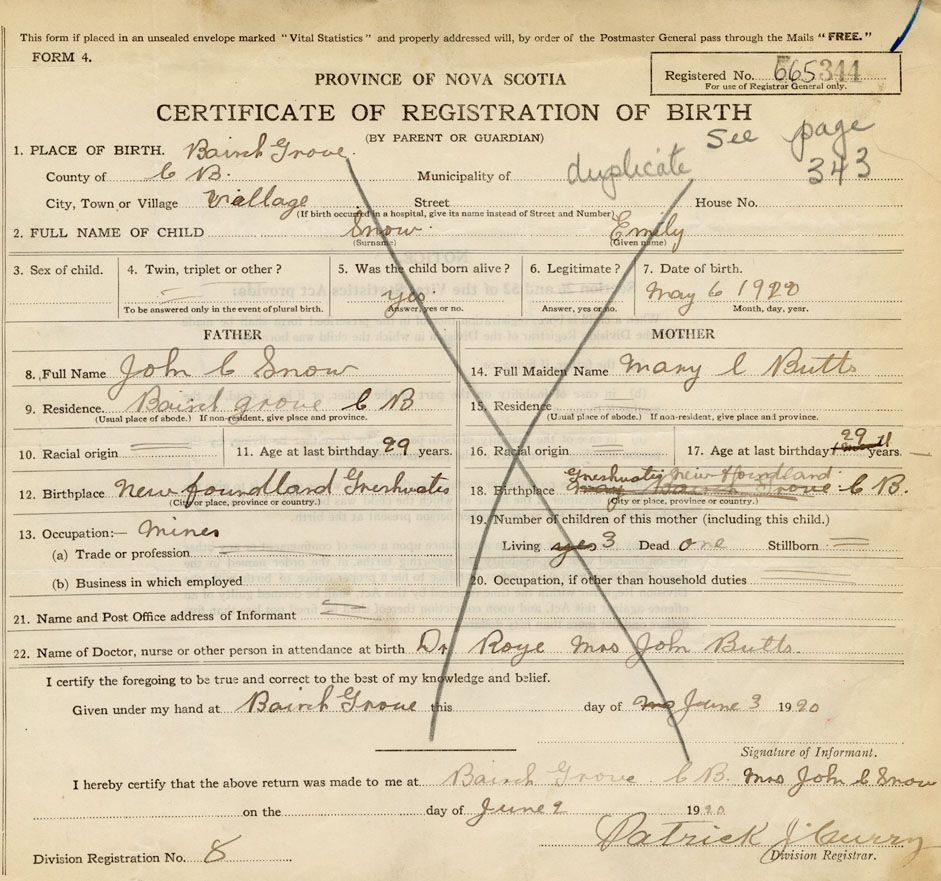 This form if placed in an unsealed envelope marked "Vital Statistics" and properly addressed will, by order of the Postmaster General pass through the Mails "FREE."
FORM 4.
PROVINCE OF NOVA SCOTIA
Registered No. 665 344
For use of Registrar General only.
CERTIFICATE OF REGISTRATION OF BIRTH
(BY PARENT OR GUARDIAN)
See page 343
duplicate
1. PLACE OF BIRTH. Bairch Grove.
County of C B. Municipality of
City, Town or Village Viallage Street House No.
(If birth occurred in a hospital, give its name instead of Street and Number)
2. FULL NAME OF CHILD Snow Emily
(Surname) (Given name)
3. Sex of child. 4. Twin, triplet or other? 5. Was the child born alive? 6. Legitimate? 7. Date of birth.
yes May 6 1920
To be answered only in the event of plural birth. Answer, yes or no. Answer, yes or no. Month, day, year.
FATHER MOTHER
8. Full Name John C Snow 14. Full Maiden Name Mary C Butts
9. Residence. Bairch grove C B 15. Residence
(Usual place of abode.) If non-resident, give place and province. (Usual place of abode.) If non-resident, give place and province.
10. Racial origin 11. Age at last birthday 29 years. 16. Racial origin 17. Age at last birthday 29 years.
12. Birthplace New foundland Greshwates 18. Birthplace Greshwates New foundland C B.
(City or place, province or country.) (City or place, province or country.)
13. Occupation:— Mines 19. Number of children of this mother (including this child.)
(a) Trade or profession. Living yes 3 Dead one Stillborn
(b) Business in which employed 20. Occupation, if other than household duties
21. Name and Post Office address of Informant
22. Name of Doctor, nurse or other person in attendance at birth Dr Roye Mrs John Butts.
I certify the foregoing to be true and correct to the best of my knowledge and belief.
Given under my hand at Bairch Grove this day of June 3 1920
Signature of Informant.
I hereby certify that the above return was made to me at Bairch Grove. C B. Mrs John C Snow
on the day of June 2 1920
Patrick J Curry
Division Registration No. 8 Division Registrar.